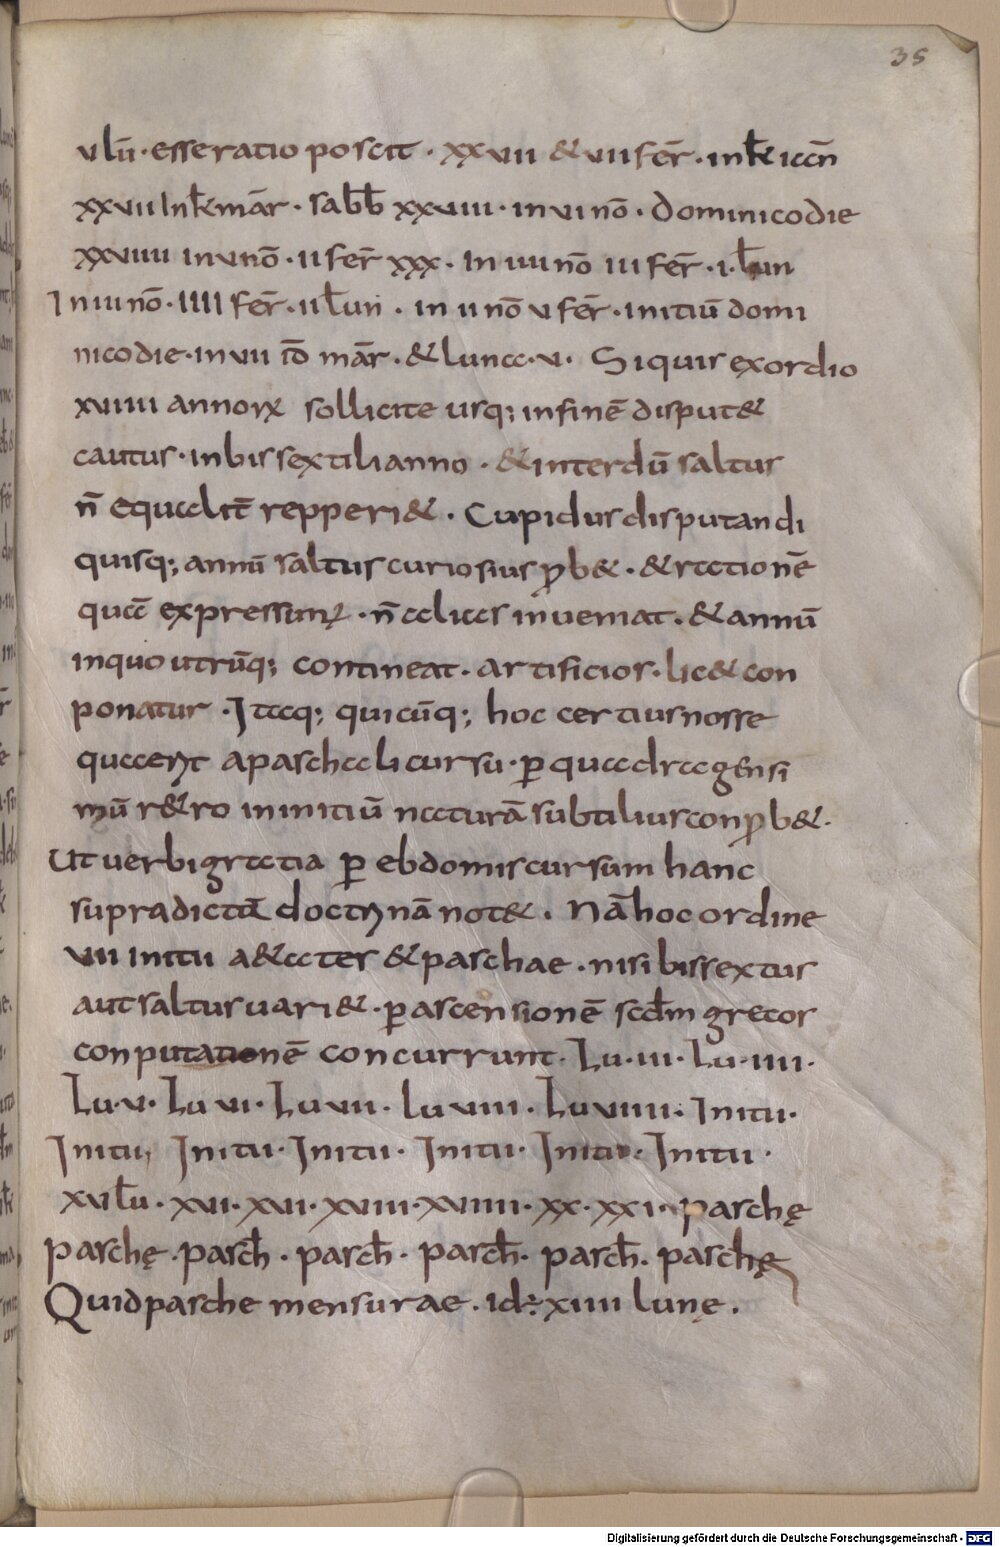 35
v lū · esse ratio poscit · xxvii & vii fer̄ · in kł ian̄
xxvii In kł mar̄ · sabb̄ xxviii · in vi nō · dominico die
xxviiii in v nō · ii fer̄ xxx · In iiii nō iii fer̄ · i · łun
In iii nō · IIII fer̄ · ii łun · in ii nō v fer̄ · initiū domi
nico die · in vii id̄ mar̄ · & luna · v · Si quis exordio
xviiii annoꝝ sollicite usq; in finē disput&
cautus · in bissextili anno · & interdū saltus
n̄ equalit̄ repperi& · Cupidus disputandi
quisq; annū saltus curiosius ꝓb& · & rationē
quā expressimꝰ · n̄ alias inveniat · & annū
in quo utrūq; contineat · artificios · lic& con
ponatur · Itaq; quicūq; hoc certius nosse
quaerit a paschali cursu · ꝑ quadragensi
mū r&ro in initiū naturā subtilius conꝓb& ·
Ut verbi gratia ꝑ ebdomis cursum hanc
supradictā doctrinā not& · Nā hoc ordine
vii initii a&ater & paschae · nisi bissextus
aut saltus vari& · ꝑ ascensionē scd̄m grecos
conputationē concurrunt · Lu · iii · Lu · iiii ·
Lu · v · Lu vi · Lu vii · lu viii · Lu viiii · Initii ·
Initii, Initii · Initii · Initii · Initii · Initii ·
xv łu · xvi · xvii · xviii · xviiii · xx · xxi · paschę
paschę · pasch̄ · pasch̄ · pasch̄ · pasch̄ · paschę
Quid pasche mensurae · id÷ xiiii lunę ·
Digitalisierung gefördert durch die Deutsche Forschungsgemeinschaft - DFG